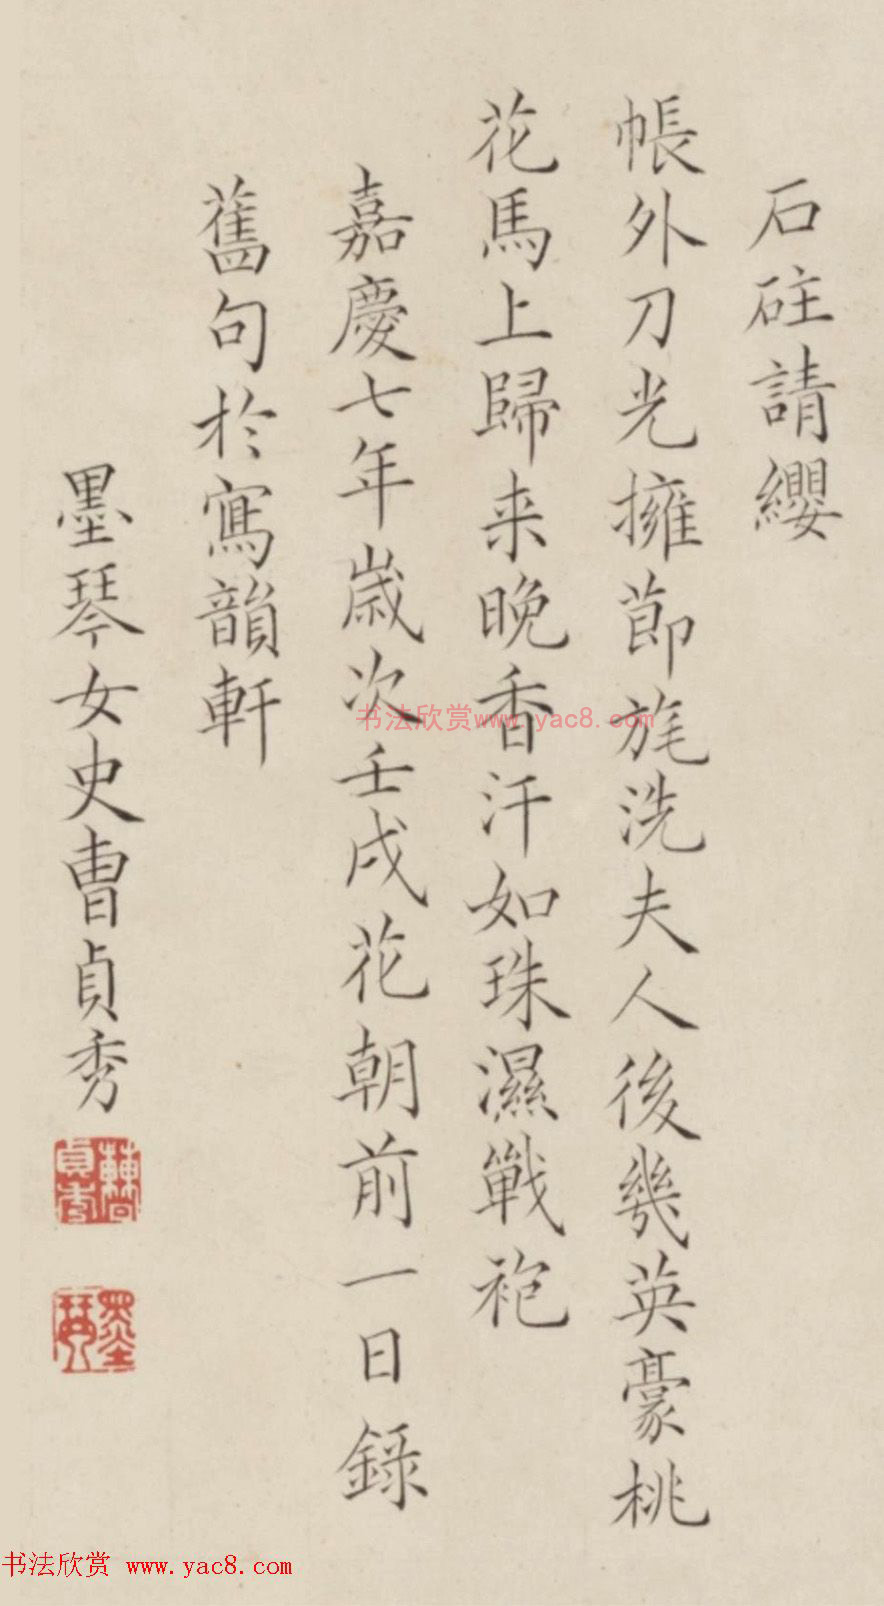 石砫請纓
帳外刀光擁節旄洗夫人後幾英豪桃
花馬上歸来晚香汗如珠濕戰袍
嘉慶七年歲次壬戌花朝前一日錄
舊句於寫韻軒
墨琴女史曹貞秀
曹貞秀
墨琴
书法欣赏www.yac8.com
书法欣赏 www.yac8.com